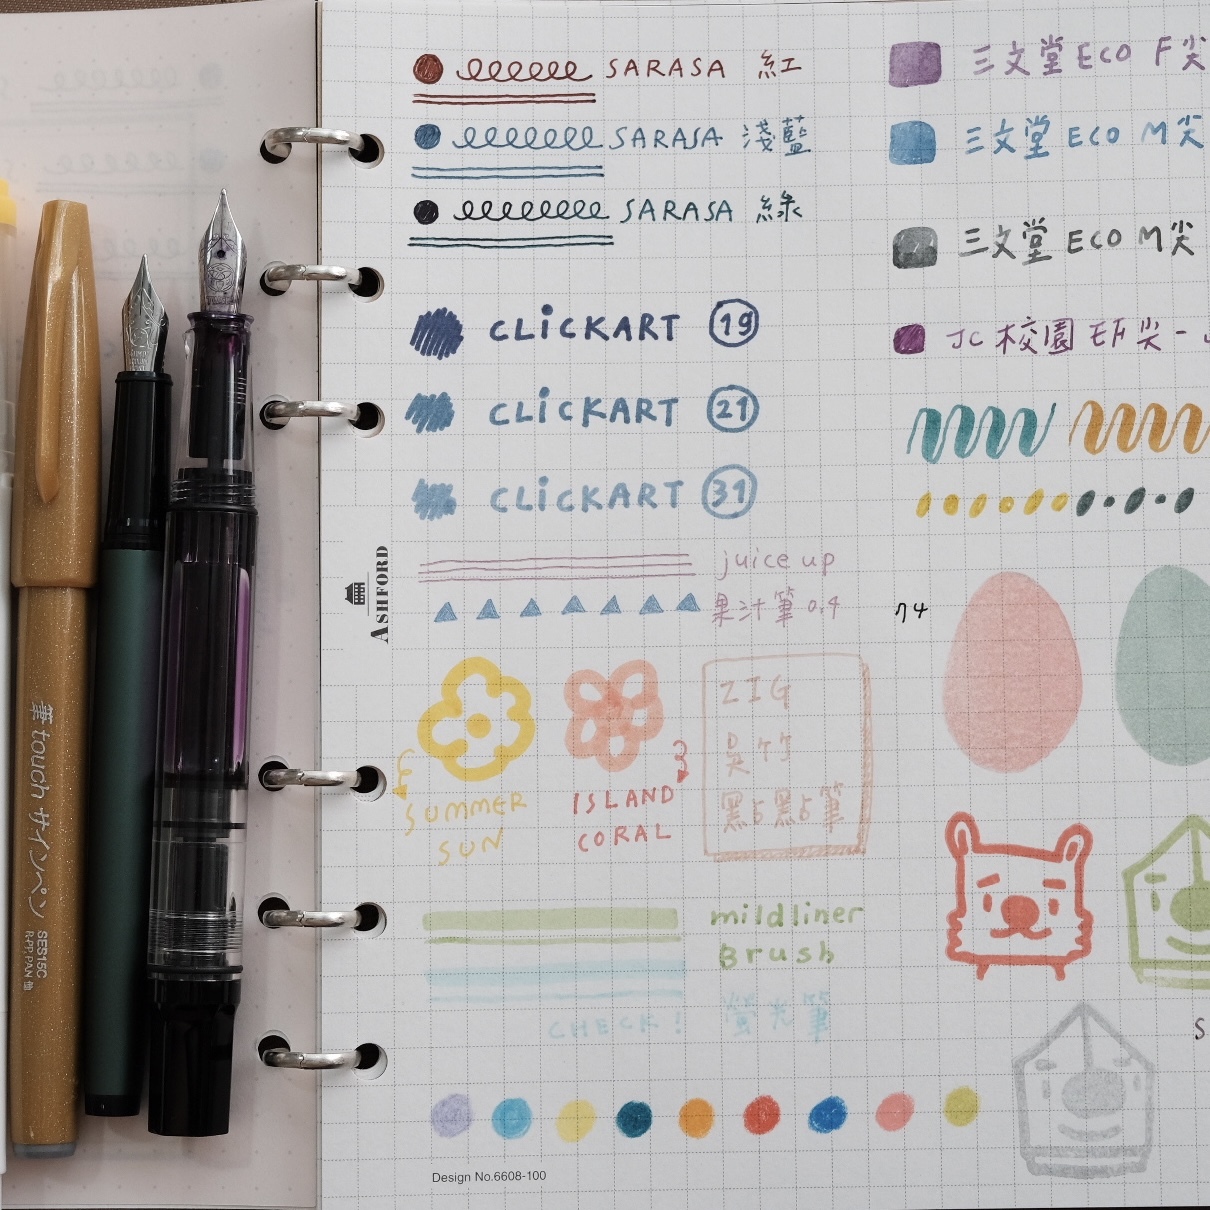 SARASA 紅
SARASA 淺藍
SARASA 綠
CLiCKART 19
CLiCKART 21
CLiCKART 31
juice up
果汁筆 0.4
SUMMER
SUN
ISLAND
CORAL
ZIG
吳竹
點點筆
mildliner
Brush
CHECK! 螢光筆
Design No.6608-100
三文堂 ECO F尖
三文堂 ECO M尖
三文堂 ECO M尖
JC 校園 EF尖 -
74
S
ASHFORD
筆touchサインペン
SES15C